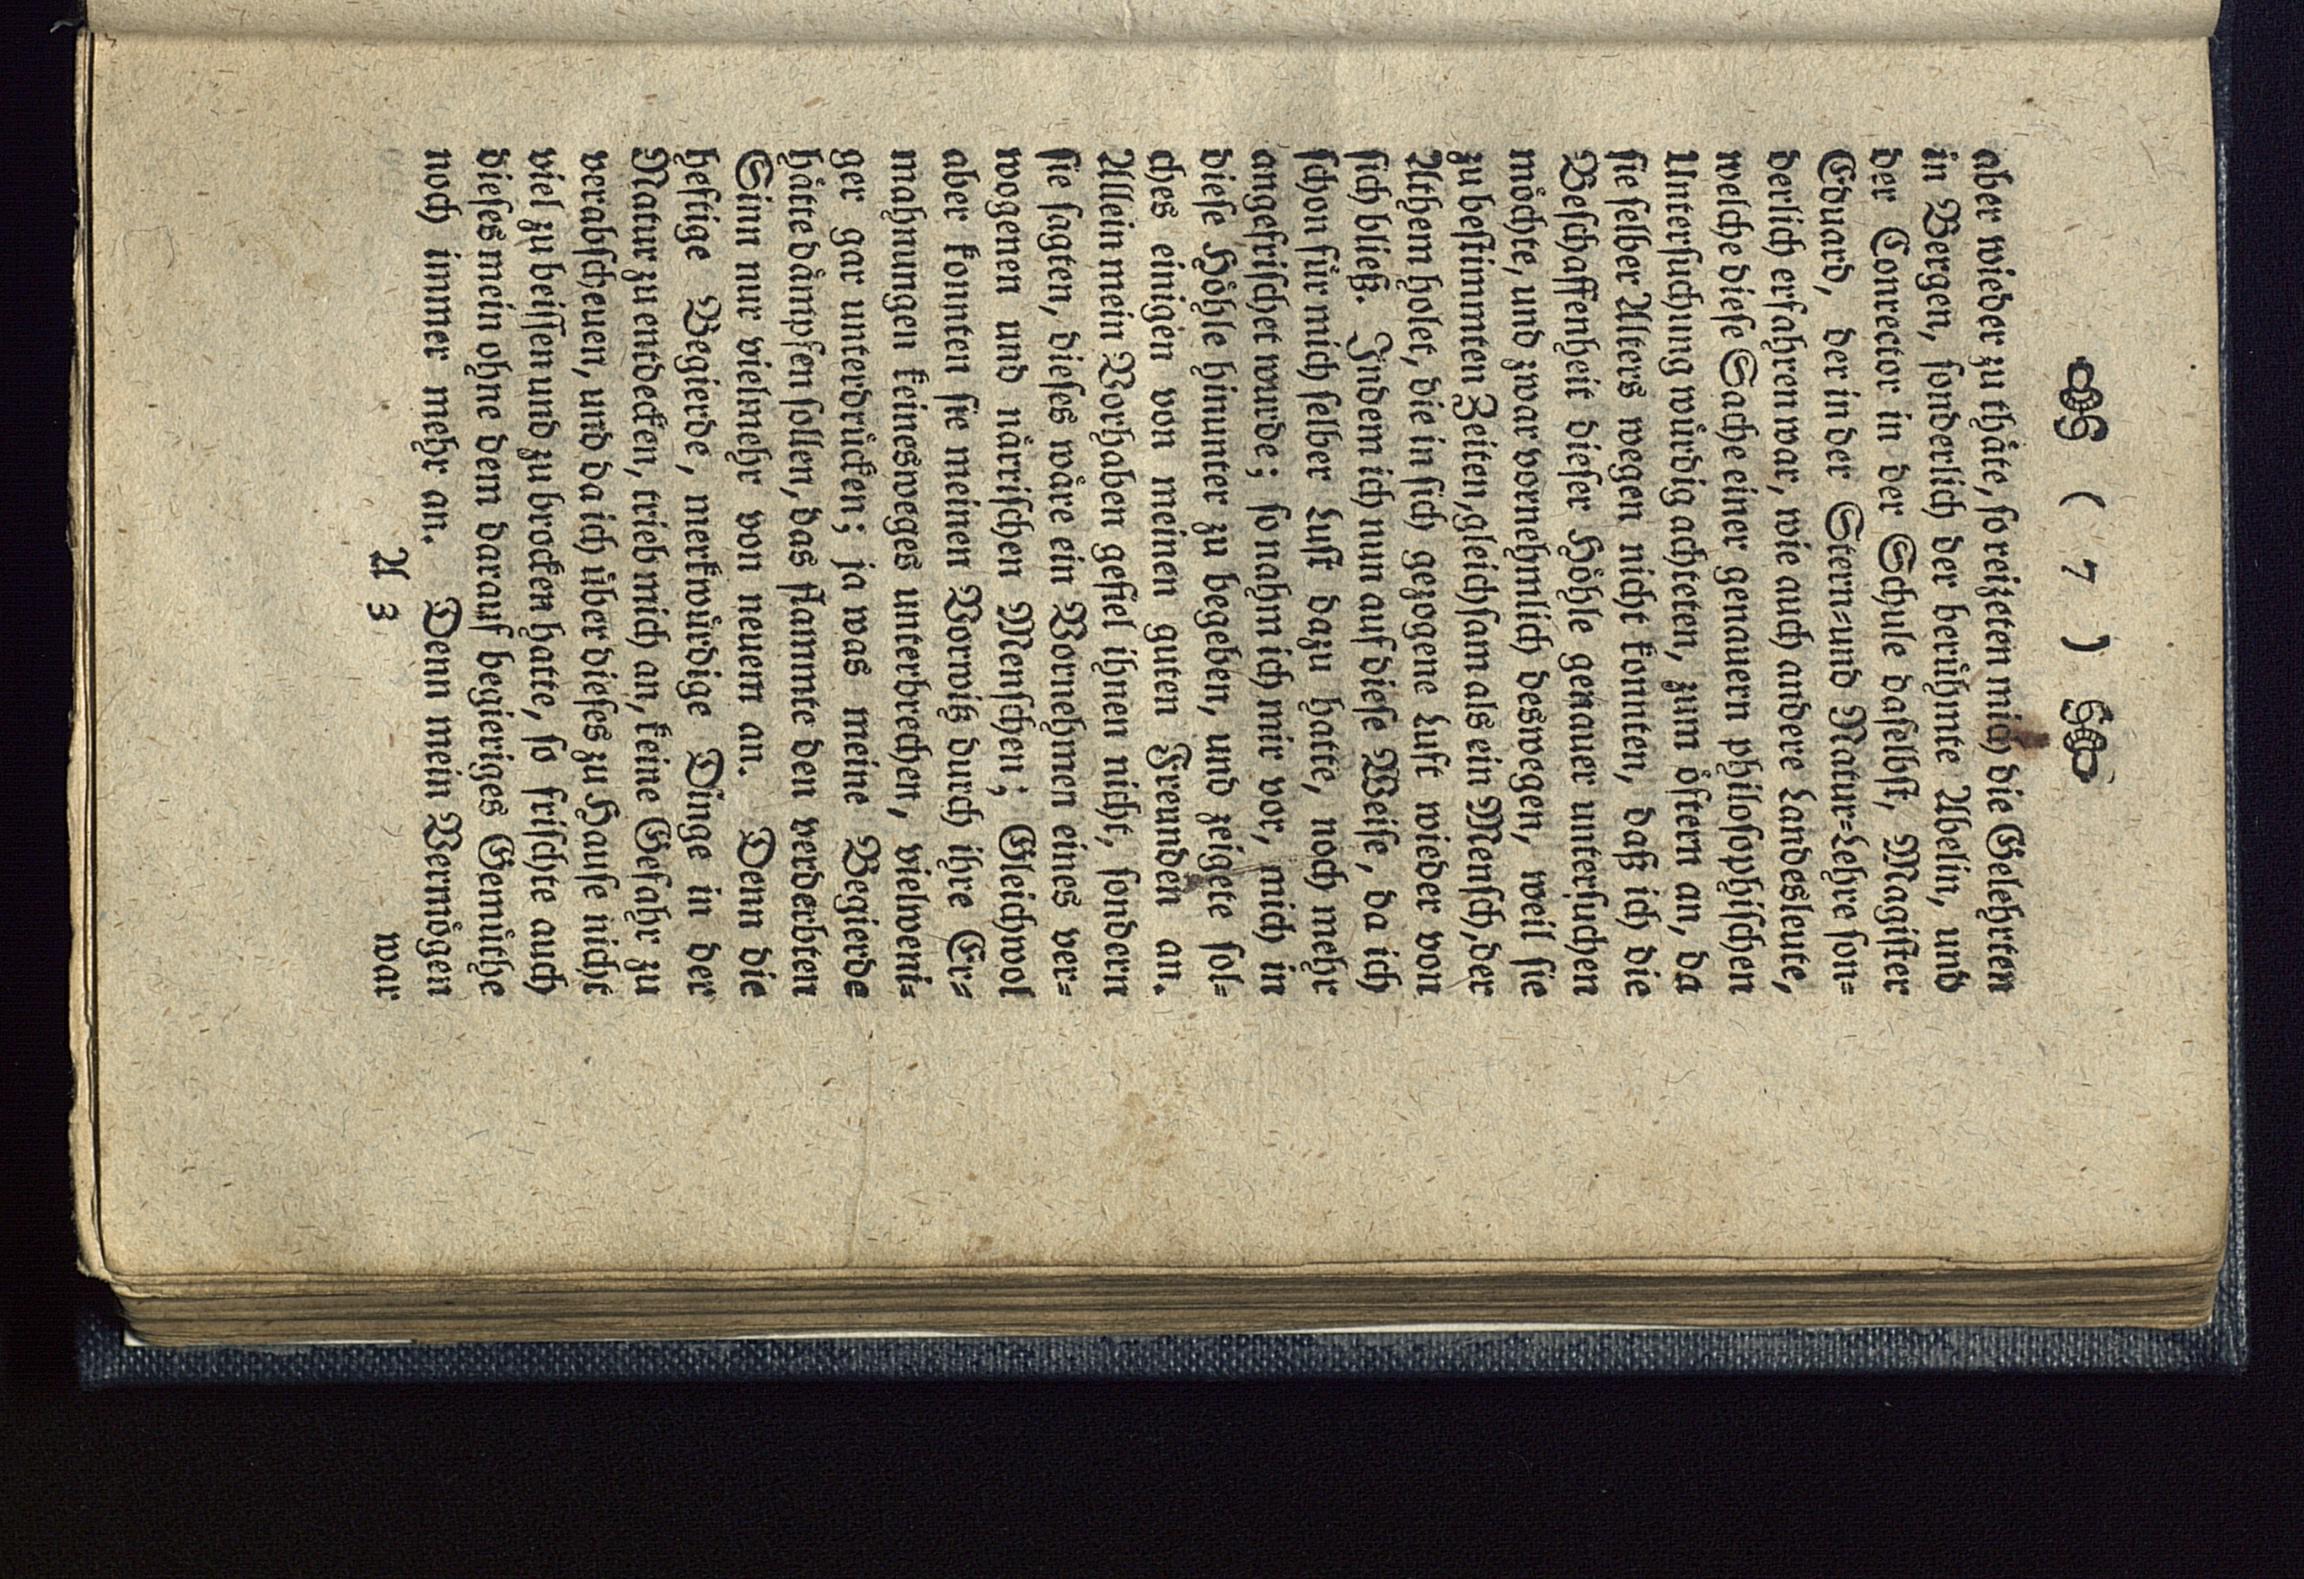 ( 7 )
aber wieder zu thäte, ſo reizeten mich die Gelehrten
in Bergen, ſonderlich der berühmte Abelin, und
der Conrector in der Schule daſelbſt, Magiſter
Eduard, der in der Stern-und Natur-Lehre ſon-
derlich erfahren war, wie auch andere Landesleute,
welche dieſe Sache einer genauern philoſophiſchen
Unterſuchung würdig achteten, zum öftern an, da
ſie ſelber Alters wegen nicht konnten, daß ich die
Beſchaffenheit dieſer Höhle genauer unterſuchen
möchte, und zwar vornehmlich deswegen, weil ſie
zu beſtimmten Zeiten, gleichſam als ein Menſch, der
Athem holet, die in ſich gezogene Luft wieder von
ſich bließ. Indem ich nun auf dieſe Weiſe, da ich
ſchon für mich ſelber Luſt dazu hatte, noch mehr
angefriſchet wurde; ſo nahm ich mir vor, mich in
dieſe Höhle hinunter zu begeben, und zeigete ſol-
ches einigen von meinen guten Freunden an.
Allein mein Vorhaben gefiel ihnen nicht, ſondern
ſie ſagten, dieſes wäre ein Vornehmen eines ver-
wogenen und närriſchen Menſchen; Gleichwol
aber konnten ſie meinen Vorwitz durch ihre Er-
mahnungen keinesweges unterbrechen, vielweni-
ger gar unterdrücken; ja was meine Begierde
hätte dämpfen ſollen, das flammte den verderbten
Sinn nur vielmehr von neuem an. Denn die
heftige Begierde, merkwürdige Dinge in der
Natur zu entdecken, trieb mich an, keine Gefahr zu
verabſcheuen, und da ich über dieſes zu Hauſe nicht
viel zu beiſſen und zu brocken hatte, ſo friſchte auch
dieſes mein ohne dem darauf begieriges Gemüthe
noch immer mehr an. Denn mein Vermögen
A 3
war